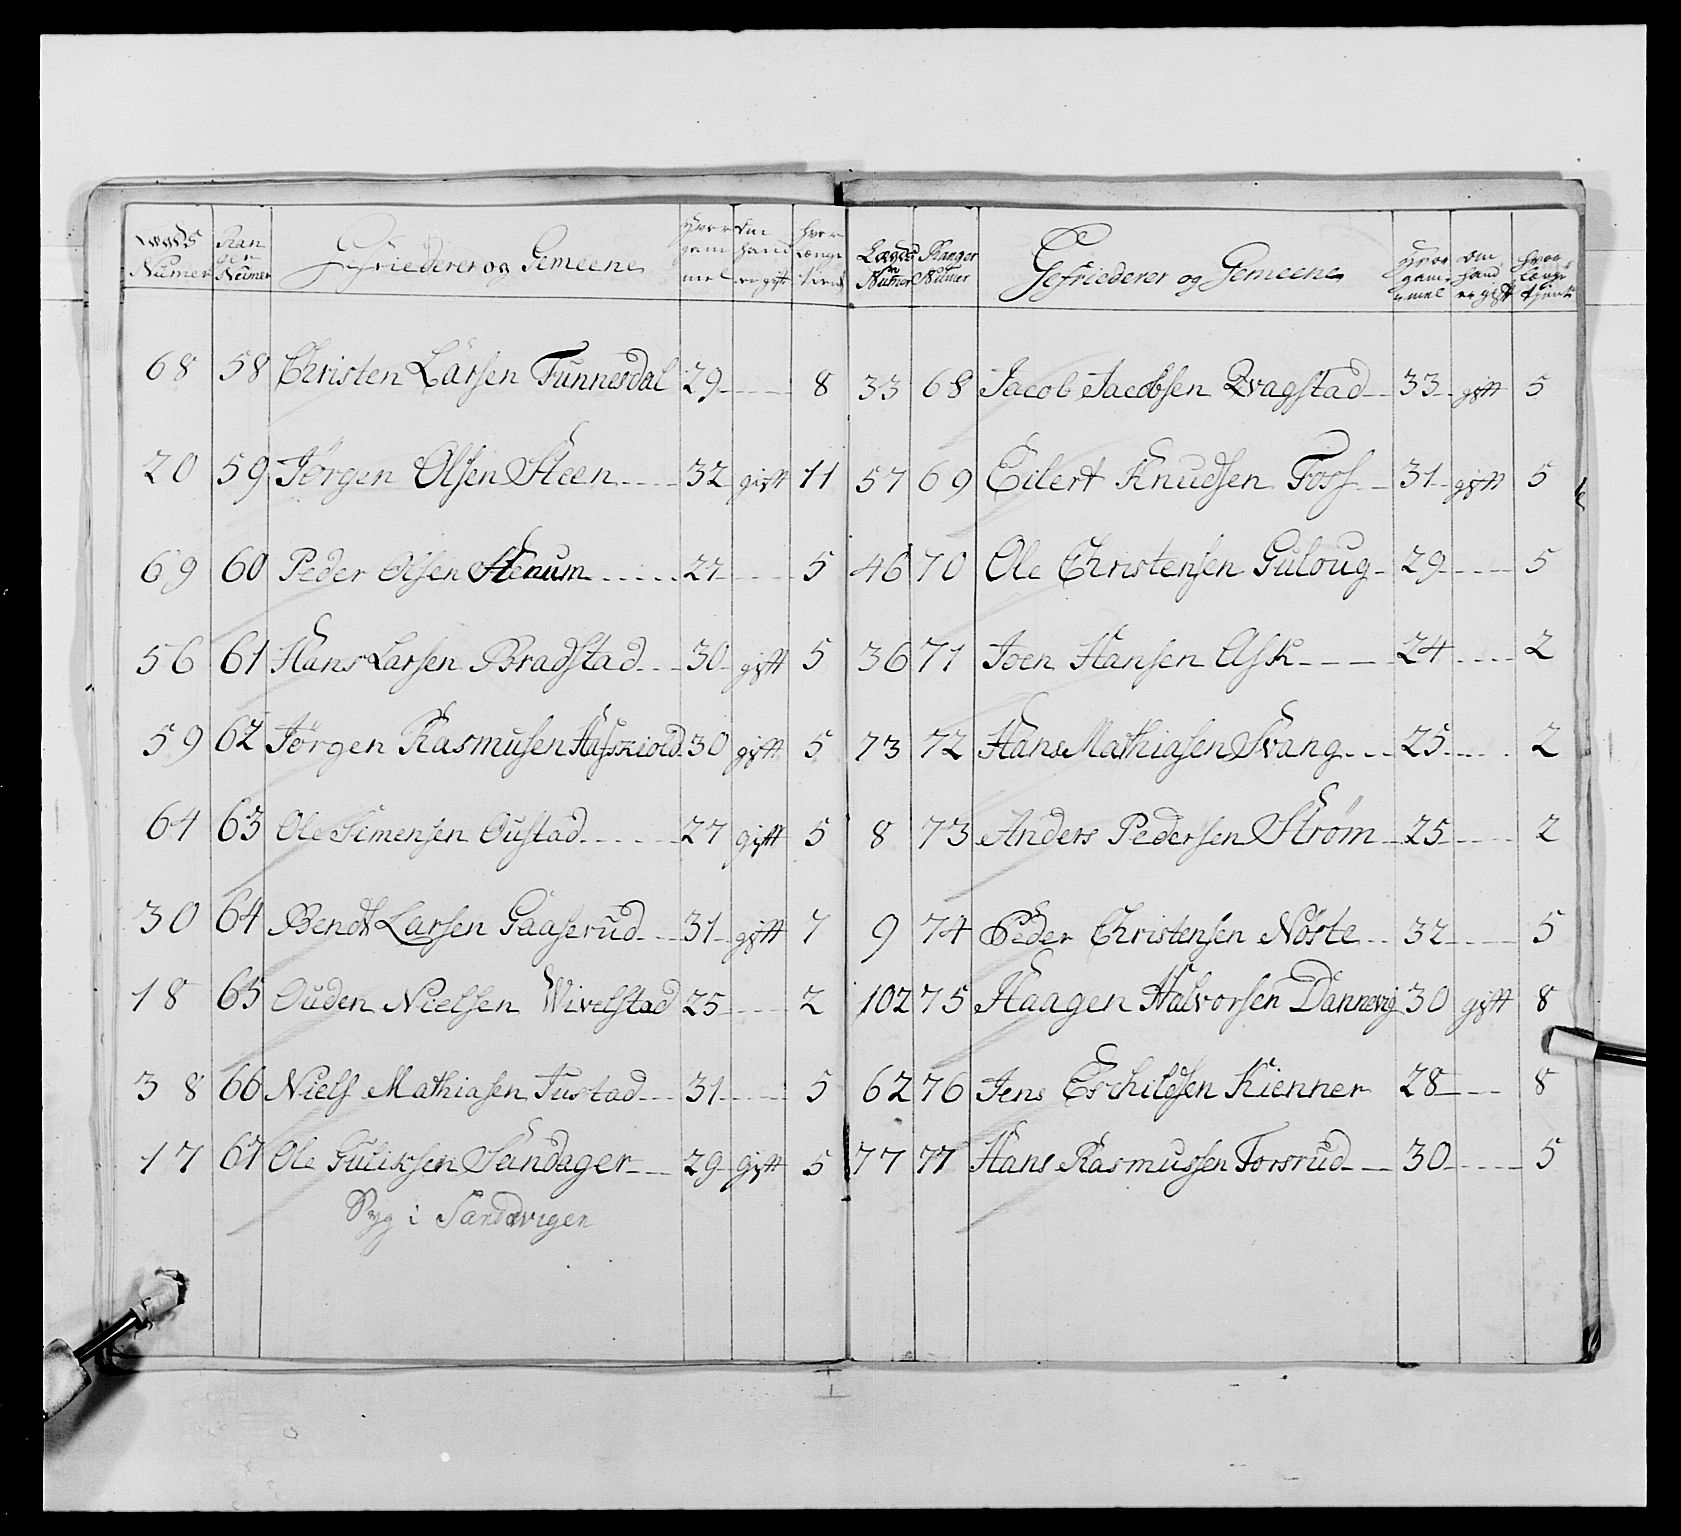 Lægds Numer Ranger Numer Gefriederer og Gemeene Hvor gammel Om hand er gift Hvor længe tient
68 58 Christen Larsen Tunnesdal 29 8
20 59 Jørgen Olsen Steen 32 gift 11
69 60 Peder Olsen Stenum 27 5
56 61 Hans Larsen Bradstad 30 gift 5
59 62 Jørgen Rasmusen Hafskiold 30 gift 5
64 63 Ole Simensen Oustad 27 gift 5
30 64 Bendt Larsen Gaaserud 31 gift 7
18 65 Ouden Nielsen Wivelstad 25 2
38 66 Niels Mathiasen Tustad 31 5
17 67 Ole Guliksen Sandager 29 gift 5
Syg i Sandvigen
Lægds Numer Ranger Numer Gefriederer og Gemeene Hvor gammel Om hand er gift hvor længe tjent
33 68 Jacob Jacobsen Qvagstad 33 gift 5
57 69 Eilert Knudsen Foss 31 gift 5
46 70 Ole Christensen Guloug 29 5
36 71 Joen Hansen Ask 24 2
73 72 Hans Mathiasen Svang 25 2
8 73 Anders Pedersen Strøm 25 2
9 74 Peder Christensen Nöste 32 5
102 75 Haagen Halvorsen Dannevig 30 gift 8
62 76 Jens Eschildsen Kienner 28 8
77 77 Hans Rasmussen Torsrud 30 5